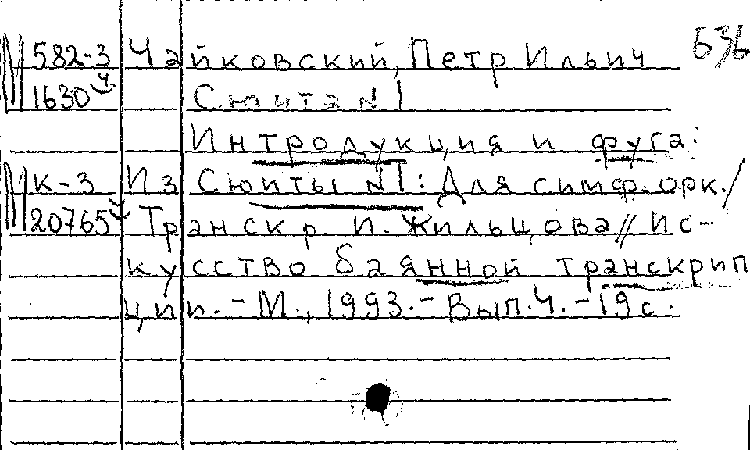 636
582-3 Чайковский, Петр Ильич
1630 Сюита №1
Интродукция и фуга:
К-3 Из Сюиты №1: Для симф. орк./
20765 Транскр. И. Жильцова // Ис-
кусство баянной транскрип
ции. - М., 1993. - Вып. 4. - 19 с.